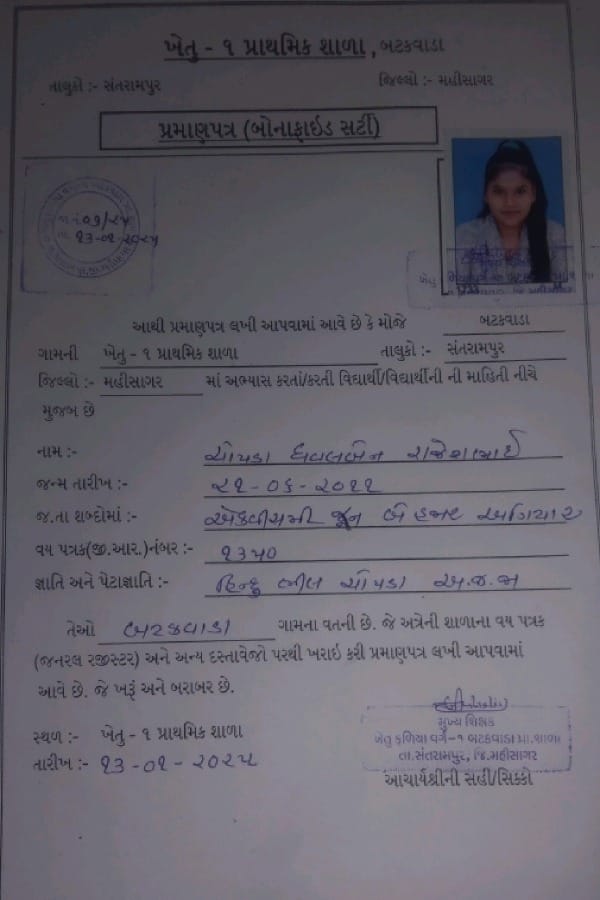 ખેતુ - ૧ પ્રાથમિક શાળા, બટકવાડા
તાલુકો :- સંતરામપુર જિલ્લો :- મહીસાગર
પ્રમાણપત્ર (બોનાફાઇડ સર્ટી)
જા.નં.૦૧/૨૫
તા. ૧૩-૦૧-૨૦૨૫
આથી પ્રમાણપત્ર લખી આપવામાં આવે છે કે મોજે બટકવાડા
ગામની ખેતુ - ૧ પ્રાથમિક શાળા તાલુકો :- સંતરામપુર
જિલ્લો :- મહીસાગર માં અભ્યાસ કરતાં/કરતી વિદ્યાર્થી/વિદ્યાર્થીની ની માહિતી નીચે
મુજબ છે
નામ :- ચોપડા ધવલબેન રાજેશભાઈ
જન્મ તારીખ :- ૨૧-૦૬-૨૦૧૧
જ.તા શબ્દોમાં :- એકવીસમી જૂન બે હજાર અગિયાર
વય પત્રક(જી.આર.)નંબર :- ૧૩૫૦
જ્ઞાતિ અને પેટાજ્ઞાતિ :- હિન્દુ ભીલ ચોપડા અ.જ.જા
તેઓ બટકવાડા ગામના વતની છે. જે અત્રેની શાળાના વય પત્રક
(જનરલ રજીસ્ટર) અને અન્ય દસ્તાવેજો પરથી ખરાઇ કરી પ્રમાણપત્ર લખી આપવામાં
આવે છે. જે ખરૂં અને બરાબર છે.
સ્થળ :- ખેતુ - ૧ પ્રાથમિક શાળા
તારીખ :- ૧૩-૦૧-૨૦૨૫
મુખ્ય શિક્ષક
ખેતુ ફળિયા વર્ગ-૧ બટકવાડા પ્રા.શાળા
તા.સંતરામપુર, જિ.મહીસાગર
આચાર્યશ્રીની સહી/સિક્કો